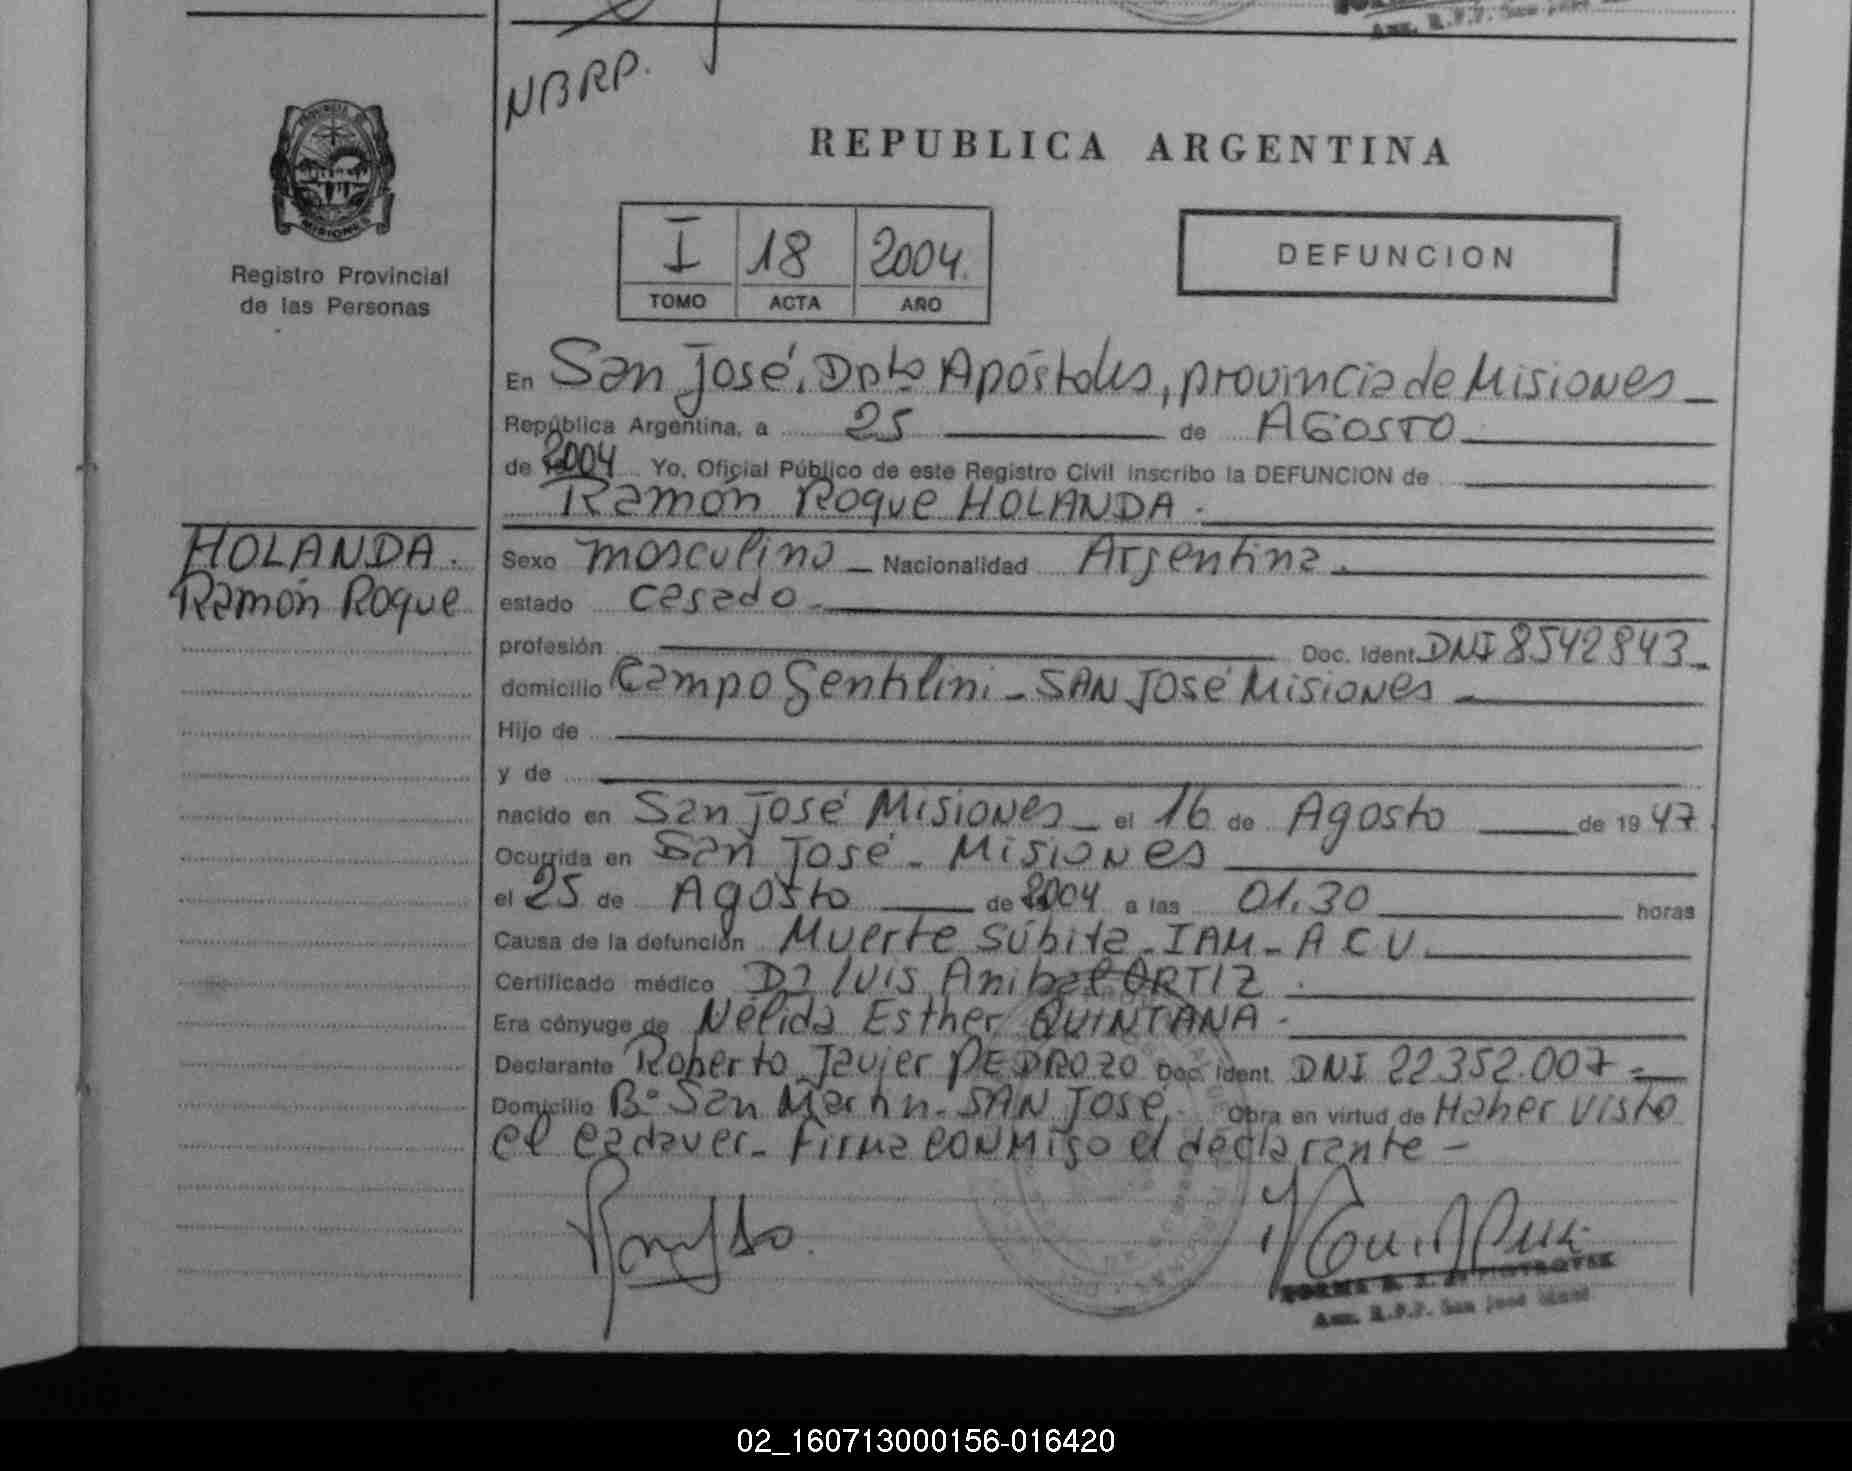 NBRP.
PROVINCIA DE
MISIONES
Registro Provincial
de las Personas
REPUBLICA ARGENTINA
I 18 2004.
TOMO ACTA AÑO
DEFUNCION
En San José. Dpto Apóstoles, provincia de Misiones
República Argentina, a 25 de AGOSTO
de 2004 Yo, Oficial Público de este Registro Civil inscribo la DEFUNCION de
Ramón Roque HOLANDA.
HOLANDA.
Ramón Roque
Sexo masculino Nacionalidad Argentina.
estado casado
profesión Doc. Ident. DNI 8542843
domicilio Campo Gentilini - SAN José Misiones
Hijo de
y de
nacido en San José Misiones el 16 de Agosto de 1947
Ocurrida en San José - Misiones
el 25 de Agosto de 2004 a las 01.30 horas
Causa de la defunción Muerte súbita - IAM - A C V.
Certificado médico Dr Luis Anibal ORTIZ.
Era cónyuge de Nélida Esther QUINTANA.
Declarante Roberto Javier PEDROZO Doc. Ident. DNI 22.352.007
Domicilio B° San Martin - SAN José. Obra en virtud de Haber visto
el cadaver - Firma conmigo el declarante -
Aux. R.P.P. San José
02_160713000156-016420